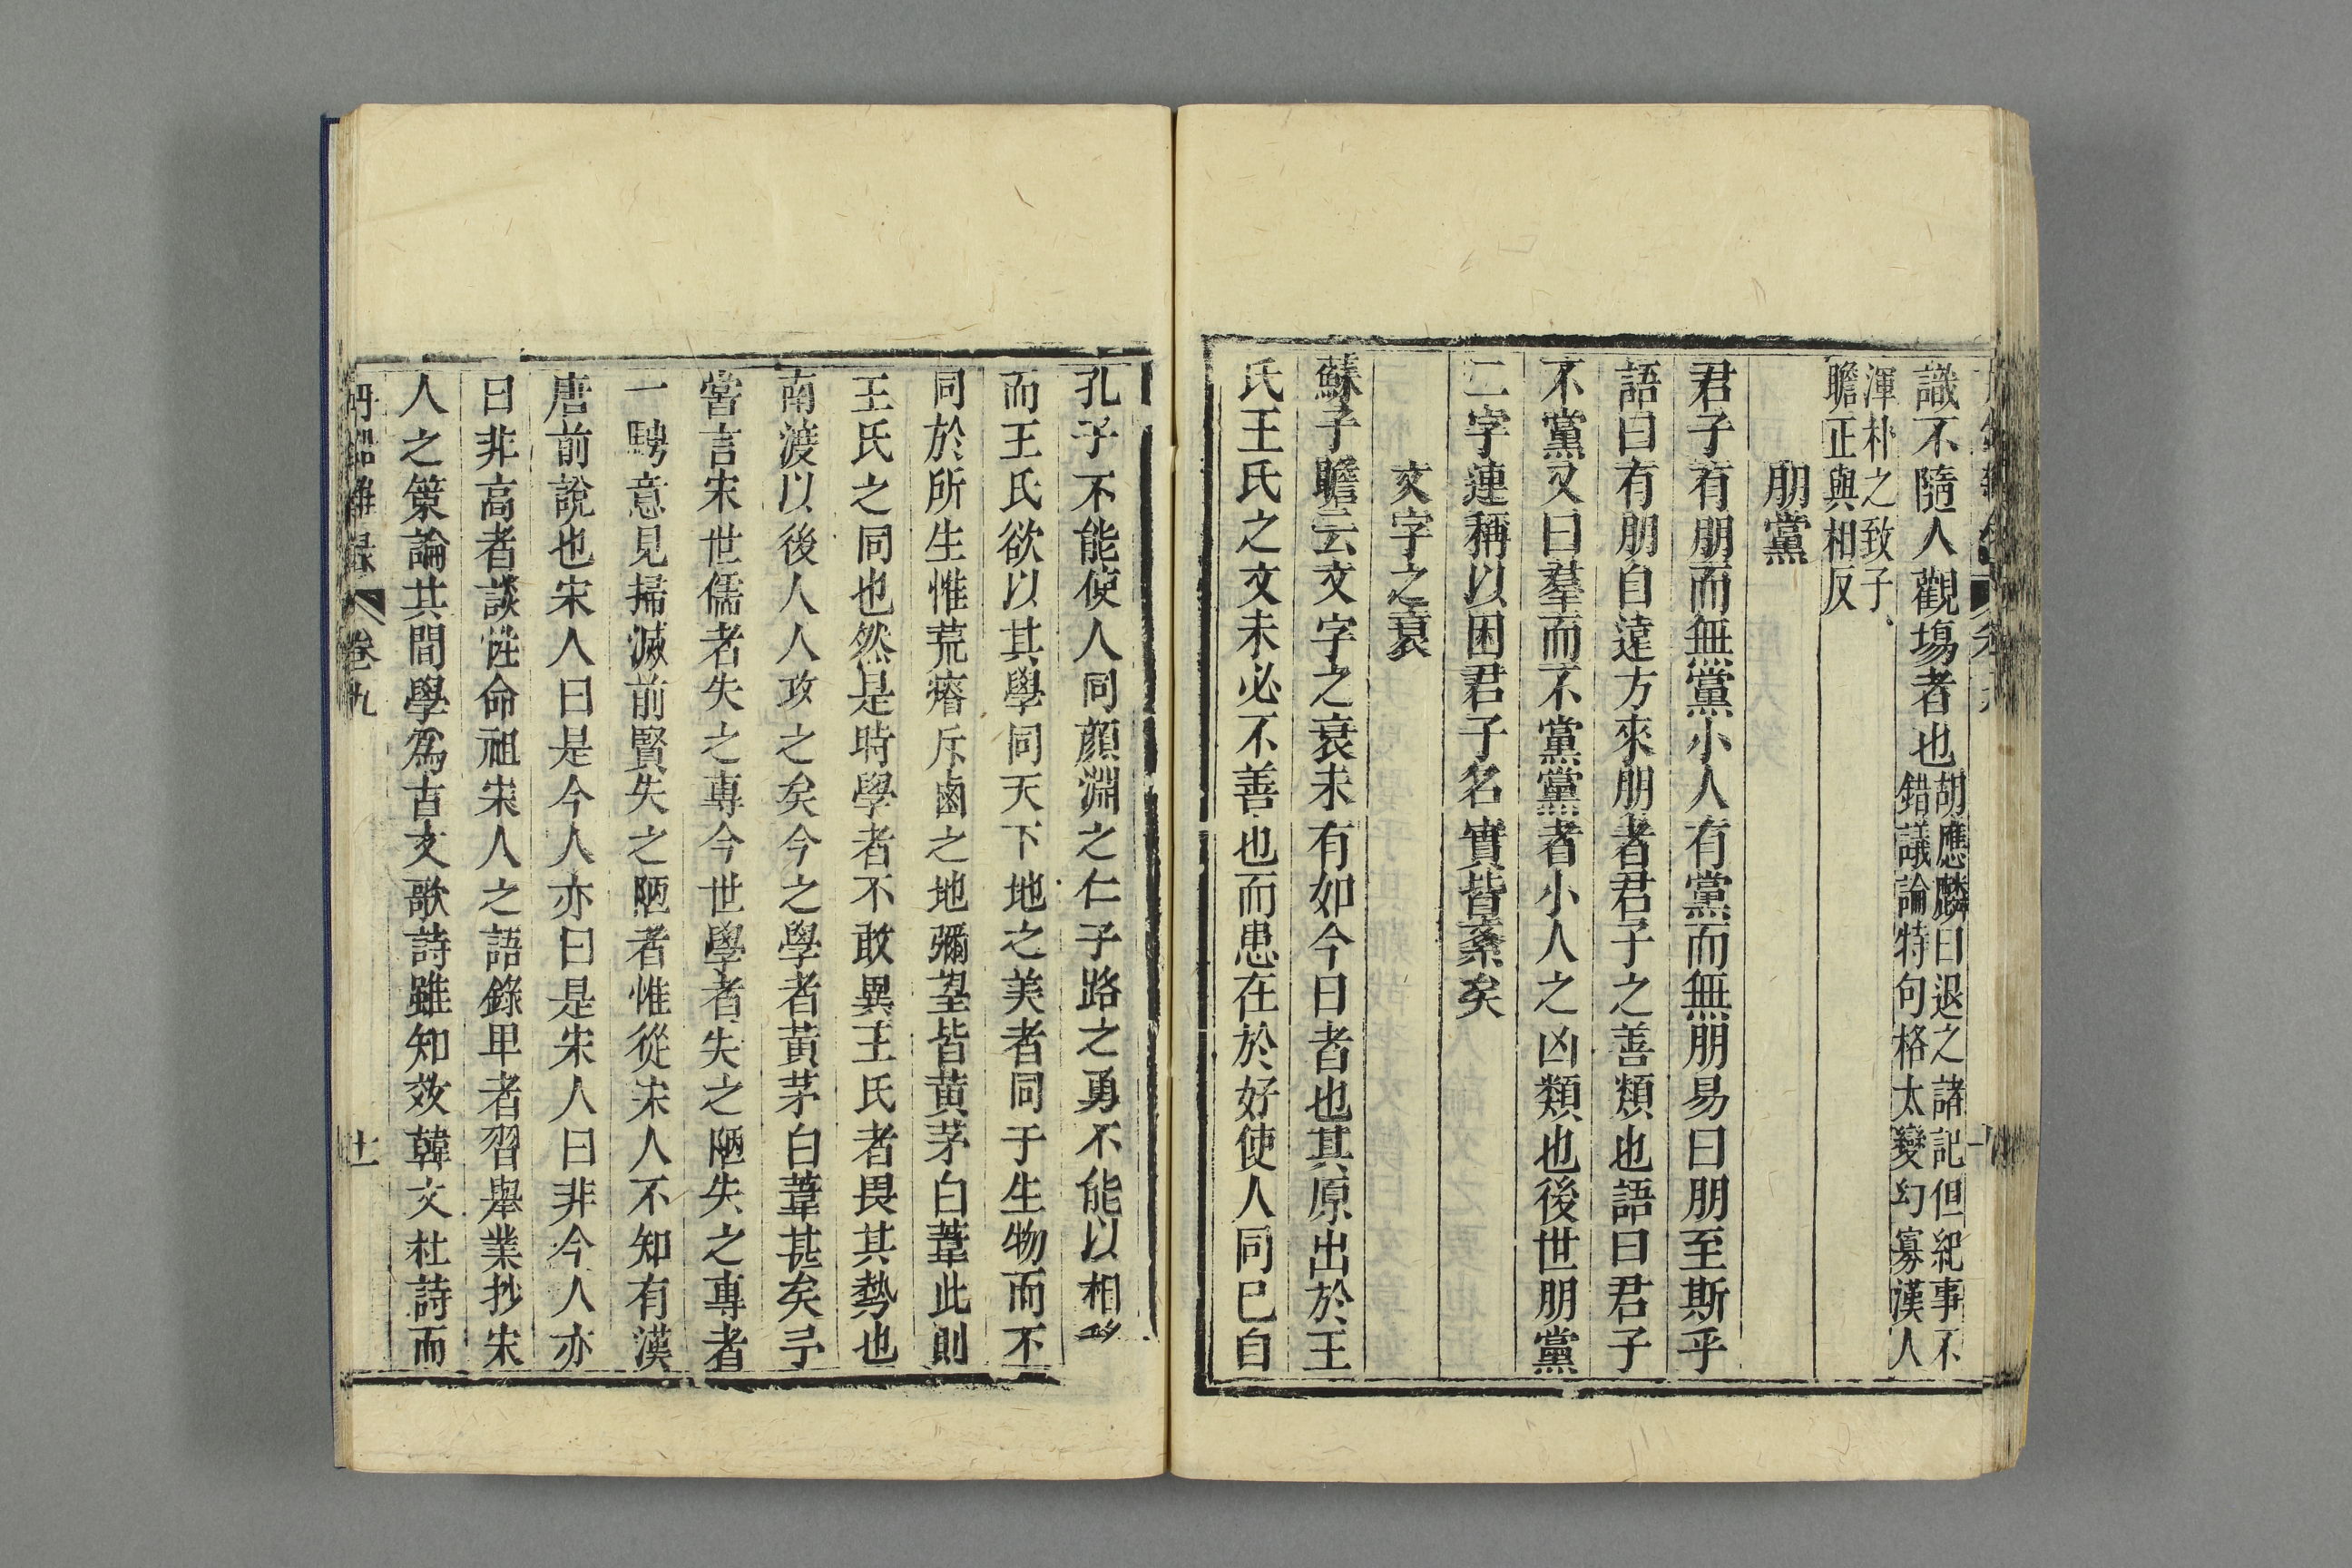 識不隨人觀場者也胡應麟曰退之諸記但紀事不
錯議論特句格太變幻寡漢人
渾朴之致子
瞻正與相反
朋黨
君子有朋而無黨小人有黨而無朋易曰朋至斯乎
語曰有朋自遠方來朋者君子之善類也語曰君子
不黨又曰羣而不黨黨者小人之凶類也後世朋黨
二字連稱以困君子名實皆紊矣
文字之衰
蘇子瞻云文字之衰未有如今日者也其原出於王
氏王氏之文未必不善也而患在於好使人同已自
孔子不能使人同顔淵之仁子路之勇不能以相移
而王氏欲以其學同天下地之美者同于生物而不
同於所生惟荒瘠斥鹵之地彌望皆黄茅白葦此則
王氏之同也然是時學者不敢異王氏者畏其勢也
南渡以後人人攻之矣今之學者黄茅白葦甚矣予
嘗言宋世儒者失之專今世學者失之陋失之專者
一騁意見掃滅前賢失之陋者惟從宋人不知有漢
唐前說也宋人曰是今人亦曰是宋人曰非今人亦
曰非高者談性命祖宋人之語錄卑者習舉業抄宋
人之策論其間學爲古文歌詩雖知效韓文杜詩而
丹鉛雜録 卷九 十一